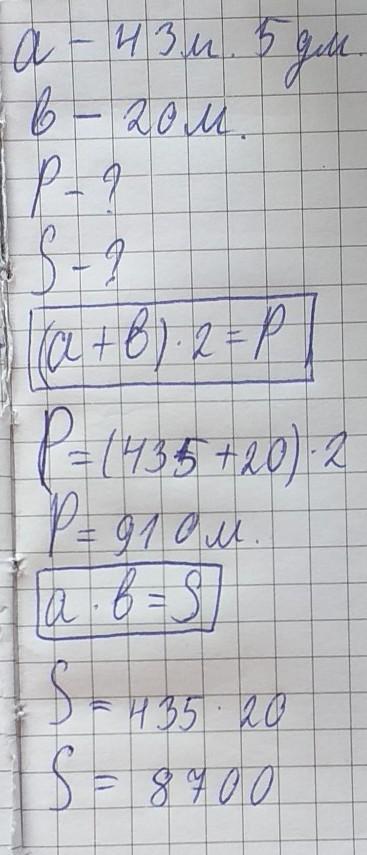 a – 43 м. 5 дм.
в – 20 м.
P – ?
S – ?
(a + в) · 2 = P
P = (435 + 20) · 2
P = 910 м.
a · в = S
S = 435 · 20
S = 8700